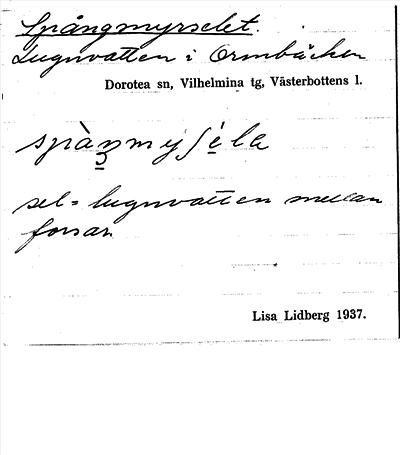 Spångmyrselet.
Lugnvatten i Ormbäcken
Dorotea sn, Vilhelmina tg, Västerbottens l.
sel = lugnvatten mellan
forsar
Lisa Lidberg 1937.